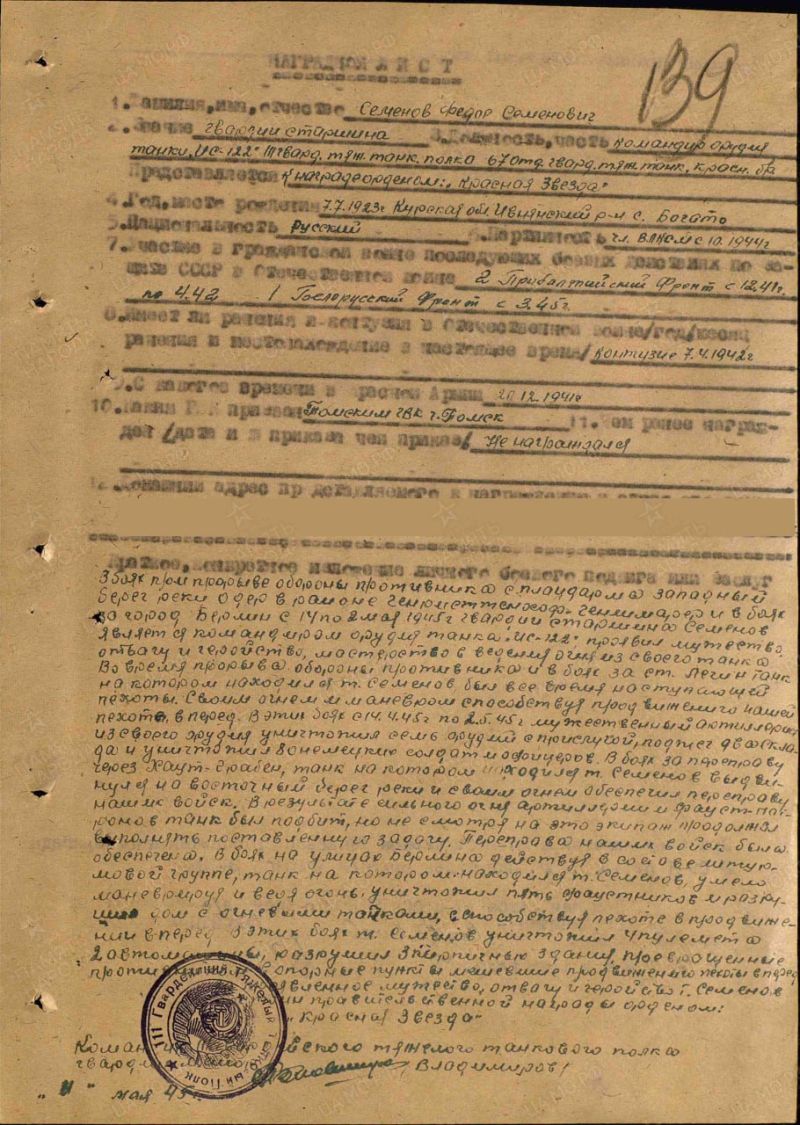 НАГРАДНОЙ ЛИСТ
139
1. Фамилия, имя, отчество Семенов Федор Семенович
2. Звание гвардии старшина 3. Должность, часть Командир орудия
танка "ИС-122" III гвард. тяж. танк. полка 67 отд. гвард. тяж. танк. красн. бр
Представляется к награде орденом: "Красная Звезда"
4. Год, место рождения 7.7.1923г Курская обл Ивнянский р-н с. Богато
5. Национальность Русский 6. Партийность чл. ВЛКСМ с 10.1944г
7. Участие в гражданской войне последующих боевых действиях по за-
щите СССР в Отечественной войне 2 Прибалтийский Фронт с 12.41г.
по 4.42 1 Белорусский Фронт с 3.45г.
8. Имеет ли ранения и контузии в Отечественной войне/год/месяц
ранения и местонахождение в настоящее время/ контузия 7.4.1942г
9. С какого времени в Красной Армии 20.12.1941г
10. Каким РВК призван Томским ГВК г. Томск 11. Чем ранее награж-
ден /дата и № приказа чей приказ/ Не награждался
12. Домашний адрес представляемого к награждению и адрес
Краткое, конкретное изложение личного боевого подвига или заслуг
В боях при прорыве обороны противника с плацдарма западный
берег реки Одер в районе и в боях
за город Берлин с 14 по 2 мая 1945г гвардии старшина Семенов
является командиром орудия танка "ИС-122" проявил мужество,
отвагу и геройство, мастерство в ведении огня из своего танка
Во время прорыва обороны противника и в боях за ст. танк
на котором находился т. Семенов был все время с наступающей
пехоты. Своим огнем и маневром способствуя продвижению нашей
пехоте, в перед. В этих боях с 14.4.45г по 2.5.45г мужественный артиллерист
из своего орудия уничтожил семь орудий с прислугой, поджег два скла-
да и уничтожил 80 немецких солдат и офицеров. В боях за переправу
через Хаупт-Грабен, танк на котором находился т. Семенов выдви-
нулся на восточный берег реки и своим огнем обеспечил переправу
наших войск. В результате сильного огня артиллерии и фауст-пат-
ронов танк был подбит, но не смотря на это экипаж продолжал
выполнять поставленную задачу. Переправа наших войск была
обеспечена. В боях на улицах Берлина действуя в составе штур-
мовой группе, танк на котором находился т. Семенов, умело
маневрируя и ведя огонь, уничтожил пять фаустников и разру-
шив дом с огневыми точками, способствуя пехоте в продвиже-
нии вперед. В этих боях т. Семенов уничтожил 4 пулемета
2 автомашины, разрушил 3 кирпичных здания, превращенные
опорные пункты мешавшие продвижению пехоты вперед
мужество, отвагу и геройство т. Семенов
правительственной награды орденом:
"Красная Звезда"
тяжелого танкового полка
гвард. /Владимиров/
"11" мая 45г.
111 Гвардейский Тяжелый Танковый Полк